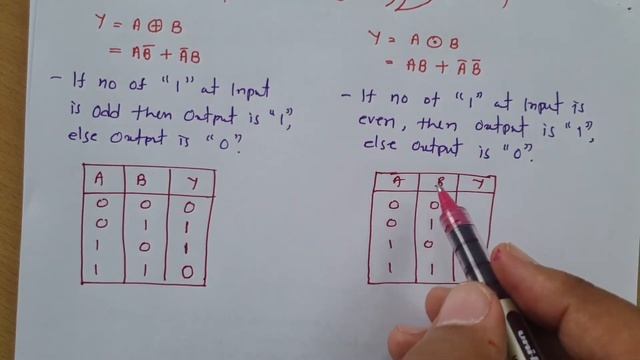 Y = A ⊕ B
= AB̅ + A̅B
- If no of "1" at Input
is odd then Output is "1",
else Output is "0".
A B Y
0 0 0
0 1 1
1 0 1
1 1 0
Y = A ⊙ B
= AB + A̅B̅
- If no of "1" at Input is
even, then Output is "1",
else Output is "0".
A B Y
0 0
0 1
1 0
1 1
uni